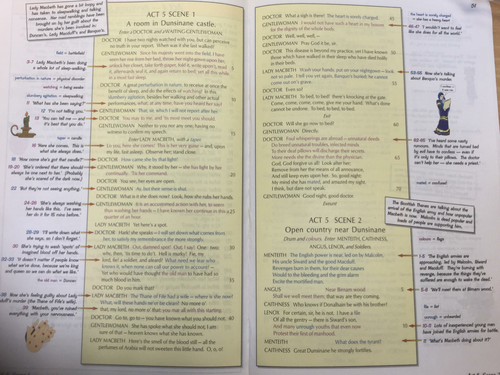 Lady Macbeth has gone a bit loopy and
has taken to sleepwalking and talking
nonsense. Her mad ramblings have been
brought on by her guilt about the
murders she's been involved in:
Duncan's, Lady Macduff's and Banquo's.
field = battlefield
5-7 Lady Macbeth's been doing
a whole lot of sleep-walking.
perturbation in nature = physical disorder
watching = being awake
slumbery agitation = sleepwalking
11 What has she been saying?
12 I'm not telling you.
13 You can tell me — and
it's best that you do.
taper = candle
16 Here she comes. This is
just what she always does.
18 How come she's got that candle?
19-20 She's ordered that there should
always be one next to her.
she's scared of the dark now.
22 But they're not seeing anything.
24-26 She's always washing
her hands like this. I've seen
her do it for 15 mins before.
28-29 I'll write down what
she says, so I don't forget.
30 She's trying to wash 'spots' of
imagined blood off her hands.
32-33 It doesn't matter if people know
what we've done, because we're king
and queen so no one can do what we like.
the old man = Duncan
36 Now she's feeling guilty about Lady Mac-
duff's murder
38 Macbeth, you've ruined
everything with your nervousness.
ACT 5 SCENE 1
A room in Dunsinane castle.
Enter a DOCTOR and a WAITING-GENTLEWOMAN.
DOCTOR I have two nights watched with you, but can perceive
no truth in your report. When was it she last walked?
GENTLEWOMAN Since his majesty went into the field, I have
seen her rise from her bed, throw her night-gown upon her,
unlock her closet, take forth paper, fold it, write upon't, read
it, afterwards seal it, and again return to bed; yet all this while
in a most fast sleep.
DOCTOR A great perturbation in nature, to receive at once the
benefit of sleep, and do the effects of watching! In this
slumbery agitation, besides her walking and other actual
performances, what, at any time, have you heard her say?
GENTLEWOMAN That, sir, which I will not report after her.
DOCTOR You may to me, and 'tis most meet you should.
GENTLEWOMAN Neither to you nor any one; having no
witness to confirm my speech.
Enter LADY MACBETH, with a taper.
Lo you, here she comes! This is her very guise; and, upon
my life, fast asleep. Observe her; stand close.
DOCTOR How came she by that light?
GENTLEWOMAN Why, it stood by her — she has light by her
continually. 'Tis her command.
DOCTOR You see, her eyes are open.
GENTLEWOMAN Ay, but their sense is shut.
DOCTOR What is it she does now? Look, how she rubs her hands.
GENTLEWOMAN It is an accustomed action with her, to seem
thus washing her hands — I have known her continue in this a
quarter of an hour.
LADY MACBETH Yet here's a spot.
DOCTOR Hark! she speaks — I will set down what comes from
her, to satisfy my remembrance the more strongly.
LADY MACBETH Out, damned spot! Out, I say! One: two:
why, then, 'tis time to do't. Hell is murky! Fie, my
lord, fie! a soldier, and afeard? What need we fear who
knows it, when none can call our power to account? —
Yet who would have thought the old man to have had so
much blood in him.
DOCTOR Do you mark that?
LADY MACBETH The Thane of Fife had a wife — where is she now?
What, will these hands ne'er be clean? No more o'
that, my lord, no more o' that: you mar all with this starting.
DOCTOR Go to, go to — you have known what you should not.
GENTLEWOMAN She has spoke what she should not, I am
sure of that — heaven knows what she has known.
LADY MACBETH Here's the smell of the blood still — all the
perfumes of Arabia will not sweeten this little hand. O, o, o!
DOCTOR What a sigh is there! The heart is sorely charged.
GENTLEWOMAN I would not have such a heart in my bosom
for the dignity of the whole body.
DOCTOR Well, well, well, —
GENTLEWOMAN Pray God it be, sir.
DOCTOR This disease is beyond my practice, yet I have known
those which have walked in their sleep who have died holily
in their beds.
LADY MACBETH Wash your hands, put on your nightgown — look
not so pale. I tell you yet again, Banquo's buried; he cannot
come out on's grave.
DOCTOR Even so?
LADY MACBETH To bed, to bed! there's knocking at the gate.
Come, come, come, come, give me your hand. What's done
cannot be undone. To bed, to bed, to bed.
Exit
DOCTOR Will she go now to bed?
GENTLEWOMAN Directly.
DOCTOR Foul whisperings are abroad — unnatural deeds
Do breed unnatural troubles, infected minds
To their deaf pillows will discharge their secrets.
More needs she the divine than the physician.
God, God forgive us all! Look after her,
Remove from her the means of all annoyance,
And still keep eyes upon her. So, good night.
My mind she has mated, and amazed my sight.
I think, but dare not speak.
GENTLEWOMAN Good night, good doctor.
Exeunt
ACT 5 SCENE 2
Open country near Dunsinane
Drum and colours. Enter MENTEITH, CAITHNESS,
ANGUS, LENOX, and Soldiers.
MENTEITH The English power is near, led on by Malcolm,
His uncle Siward and the good Macduff.
Revenges burn in them, for their dear causes
Would to the bleeding and the grim alarm
Excite the mortified man.
ANGUS Near Birnam wood
Shall we well meet them; that way are they coming.
CAITHNESS Who knows if Donalbain be with his brother?
LENOX For certain, sir, he is not. I have a file
Of all the gentry — there is Siward's son,
And many unrough youths that even now
Protest their first of manhood.
MENTEITH What does the tyrant?
CAITHNESS Great Dunsinane he strongly fortifies.
51
the heart is sorely charged
= she has a heavy heart
46-47 I wouldn't want to feel
like she does for all the world
52-55 Now she's talking
about Banquo's murder.
60-65 I've heard some nasty
rumours. Minds that are tormented
by evil have to confess — even if
it's only to their pillows. The doctor
can't help her — she needs a priest.
mated = confused
The Scottish Thanes are talking about the
arrival of the English army and how unpopular
Macbeth is now. Malcolm is dead popular and
loads of people are supporting him.
colours = flags
1-5 The English armies are
approaching, led by Malcolm, Siward
and Macduff. They're burning with
revenge, because the things they've
suffered are enough to wake the dead.
5-6 We'll meet them at Birnam wood.
file = list
unrough = unbearded
10-11 Lots of inexperienced young men
have joined the English army for battle.
11 What's Macbeth doing about it?